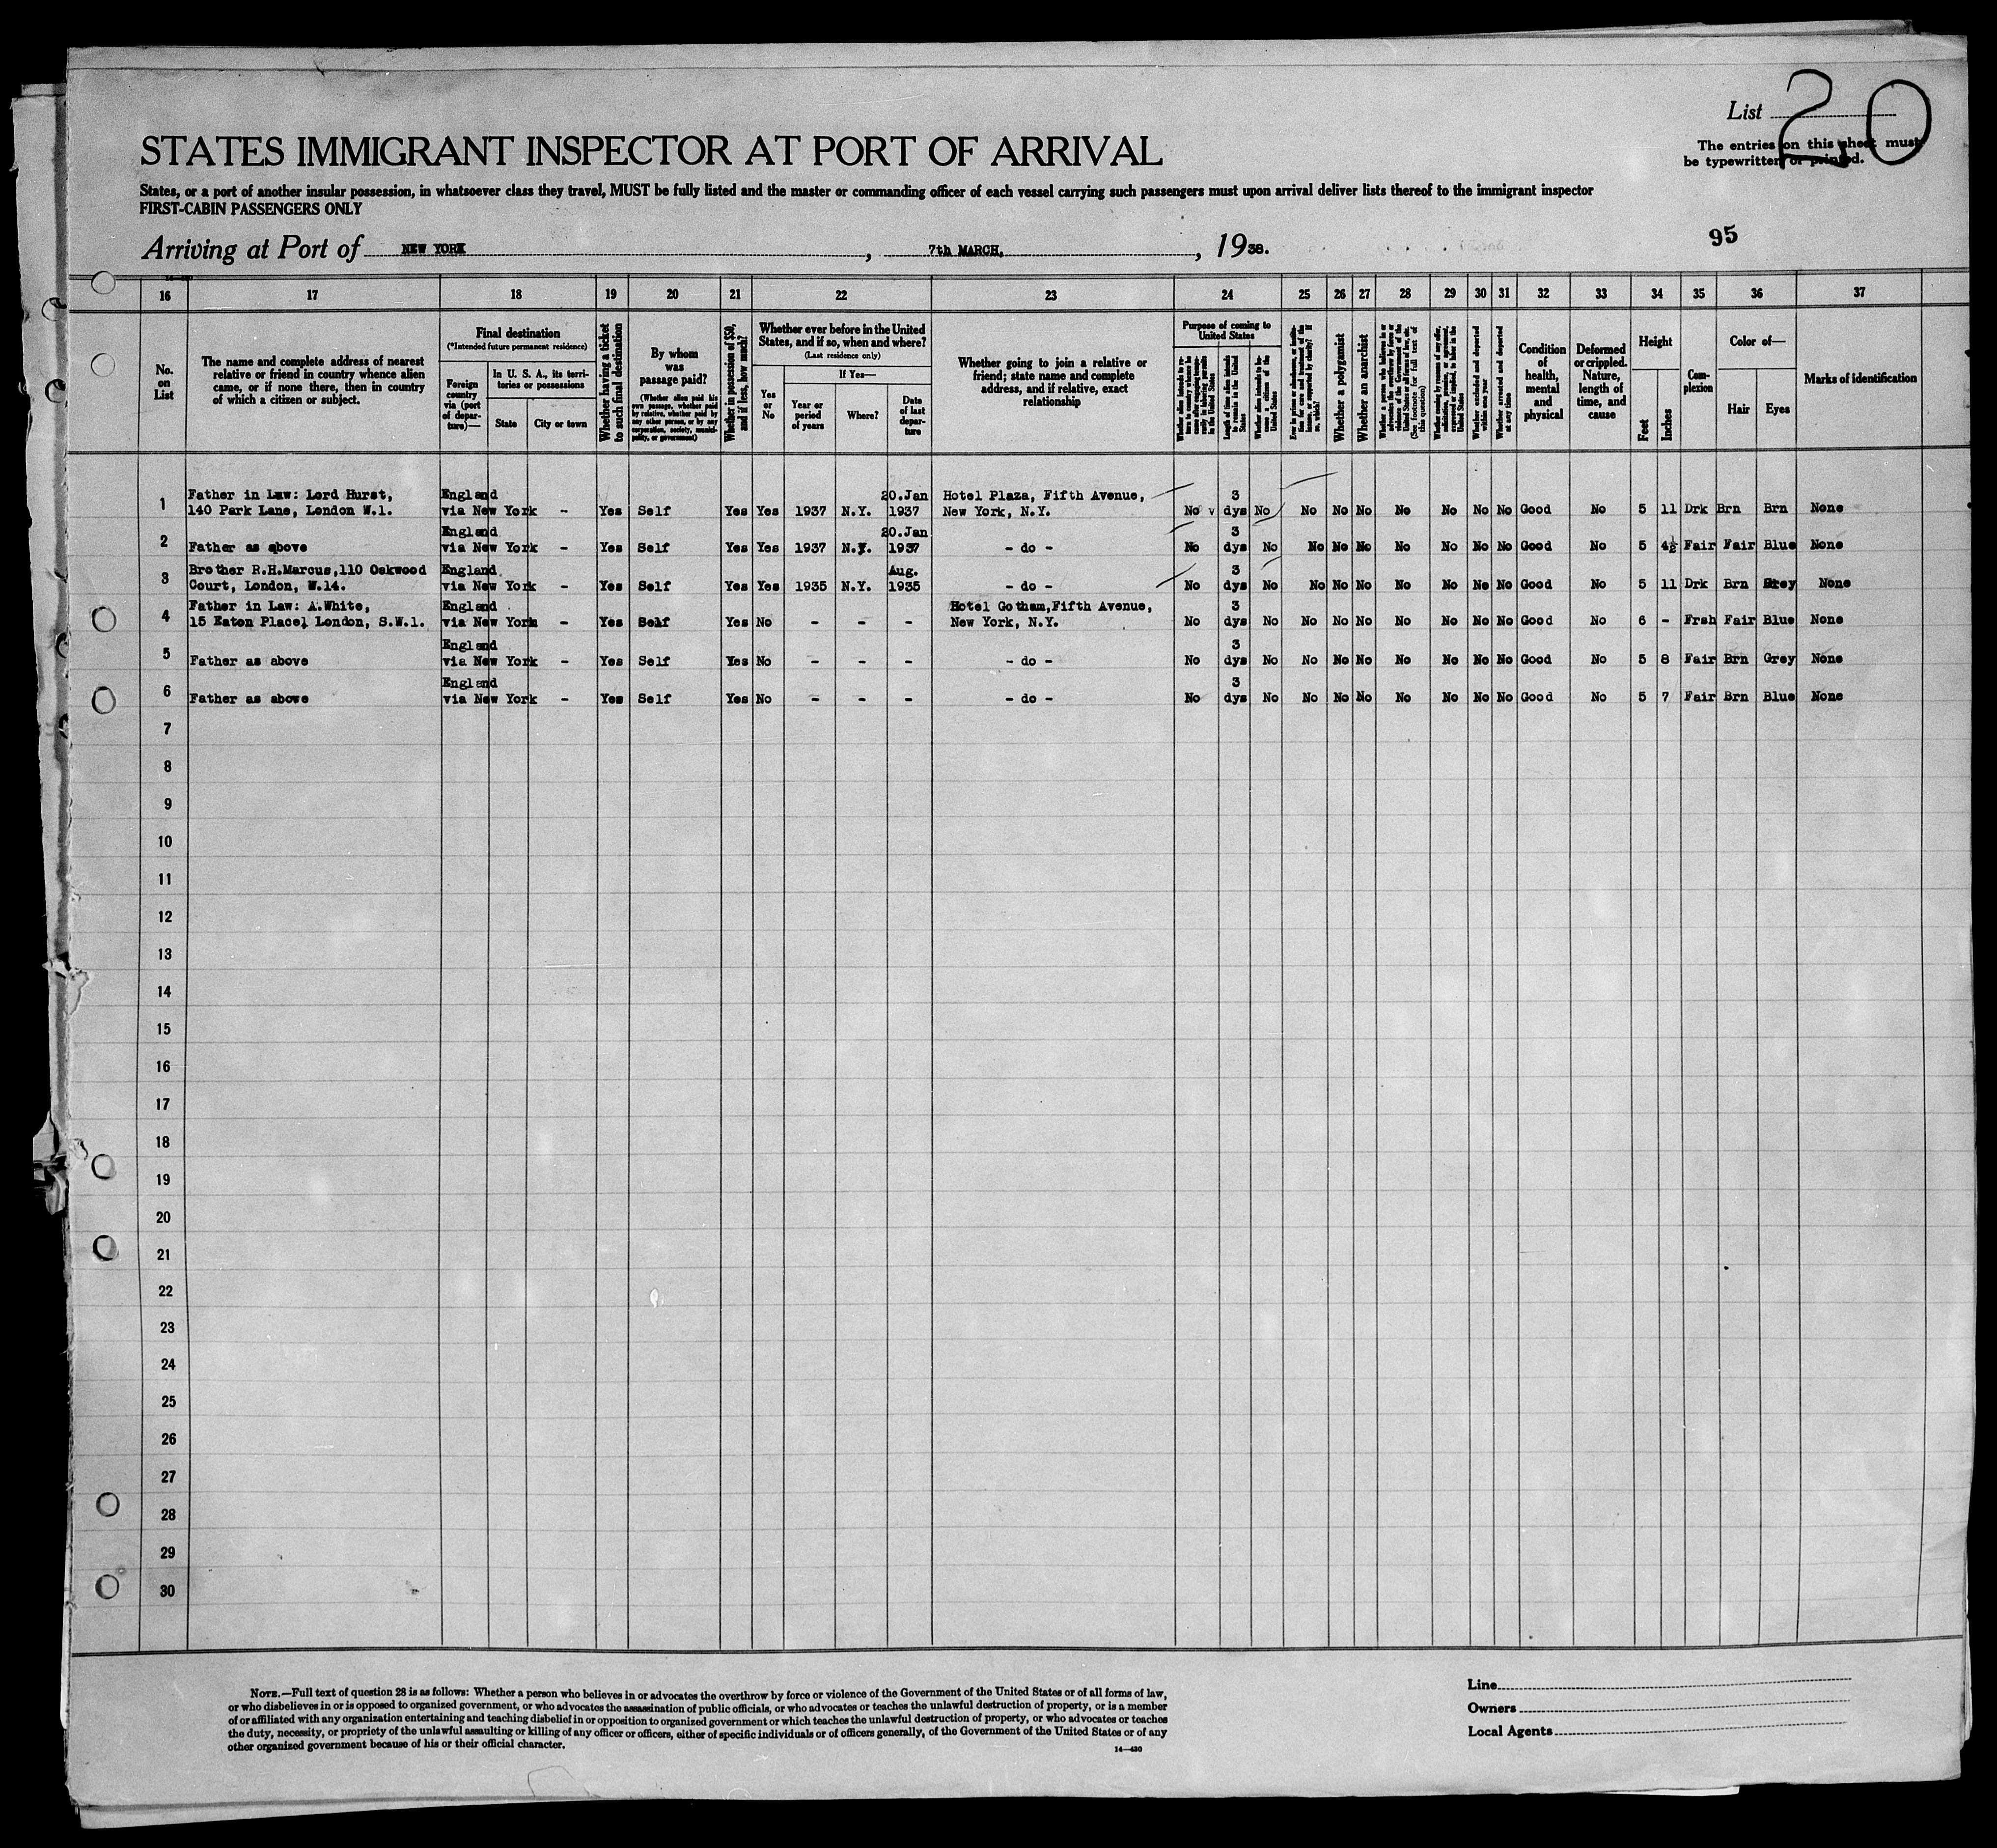 List 20
The entries on this sheet must
be typewritten or printed.
STATES IMMIGRANT INSPECTOR AT PORT OF ARRIVAL
States, or a port of another insular possession, in whatsoever class they travel, MUST be fully listed and the master or commanding officer of each vessel carrying such passengers must upon arrival deliver lists thereof to the immigrant inspector
FIRST-CABIN PASSENGERS ONLY
95
Arriving at Port of NEW YORK, 7th MARCH, 1938.
16 17 18 19 20 21 22 23 24 25 26 27 28 29 30 31 32 33 34 35 36 37
No.
on
List
The name and complete address of nearest
relative or friend in country whence alien
came, or if none there, then in country
of which a citizen or subject.
Final destination
(*Intended future permanent residence)
Foreign
country
via (port
of depar-
ture)—
In U. S. A., its terri-
tories or possessions
State
City or town
Whether having a ticket
to such final destination
By whom
was
passage paid?
(Whether alien paid his
own passage, whether paid
by relative, whether paid by
any other person, or by any
corporation, society, munici-
pality, or government)
Whether in possession of $50,
and if less, how much?
Whether ever before in the United
States, and if so, when and where?
(Last residence only)
Yes
or
No
If Yes—
Year or
period
of years
Where?
Date
of last
depar-
ture
Whether going to join a relative or
friend; state name and complete
address, and if relative, exact
relationship
Purpose of coming to
United States
Length of time alien intends
to remain in the United
States
Whether alien intends to be-
come a citizen of the
United States
Whether a polygamist
Whether an anarchist
Whether excluded and deported
within one year
Whether arrested and deported
at any time
Condition
of
health,
mental
and
physical
Deformed
or crippled.
Nature,
length of
time, and
cause
Height
Feet
Inches
Com-
plexion
Color of—
Hair
Eyes
Marks of identification
Father in Law: Lord Hurst, England 20.Jan Hotel Plaza, Fifth Avenue, 3
1 140 Park Lane, London W.1. via New York - Yes Self Yes Yes 1937 N.Y. 1937 New York, N.Y. No dys No No No No No No No No Good No 5 11 Drk Brn Brn None
England 20.Jan 3
2 Father as above via New York - Yes Self Yes Yes 1937 N.Y. 1937 - do - No dys No No No No No No No No Good No 5 4½ Fair Fair Blue None
Brother R.H.Marcus,110 Oakwood England Aug. 3
3 Court, London, W.14. via New York - Yes Self Yes Yes 1935 N.Y. 1935 - do - No dys No No No No No No No No Good No 5 11 Drk Brn Grey None
Father in Law: A.White, England Hotel Gotham,Fifth Avenue, 3
4 15 Eaton Place, London, S.W.1. via New York - Yes Self Yes No - - - New York, N.Y. No dys No No No No No No No No Good No 6 - Frsh Fair Blue None
England 3
5 Father as above via New York - Yes Self Yes No - - - - do - No dys No No No No No No No No Good No 5 8 Fair Brn Grey None
England 3
6 Father as above via New York - Yes Self Yes No - - - - do - No dys No No No No No No No No Good No 5 7 Fair Brn Blue None
7
8
9
10
11
12
13
14
15
16
17
18
19
20
21
22
23
24
25
26
27
28
29
30
NOTE.—Full text of question 28 is as follows: Whether a person who believes in or advocates the overthrow by force or violence of the Government of the United States or of all forms of law,
or who disbelieves in or is opposed to organized government, or who advocates the assassination of public officials, or who advocates or teaches the unlawful destruction of property, or is a member
of or affiliated with any organization entertaining and teaching disbelief in or opposition to organized government or which teaches the unlawful destruction of property, or who advocates or teaches
the duty, necessity, or propriety of the unlawful assaulting or killing of any officer or officers, either of specific individuals or of officers generally, of the Government of the United States or of any
other organized government because of his or their official character.
14—430
Line
Owners
Local Agents